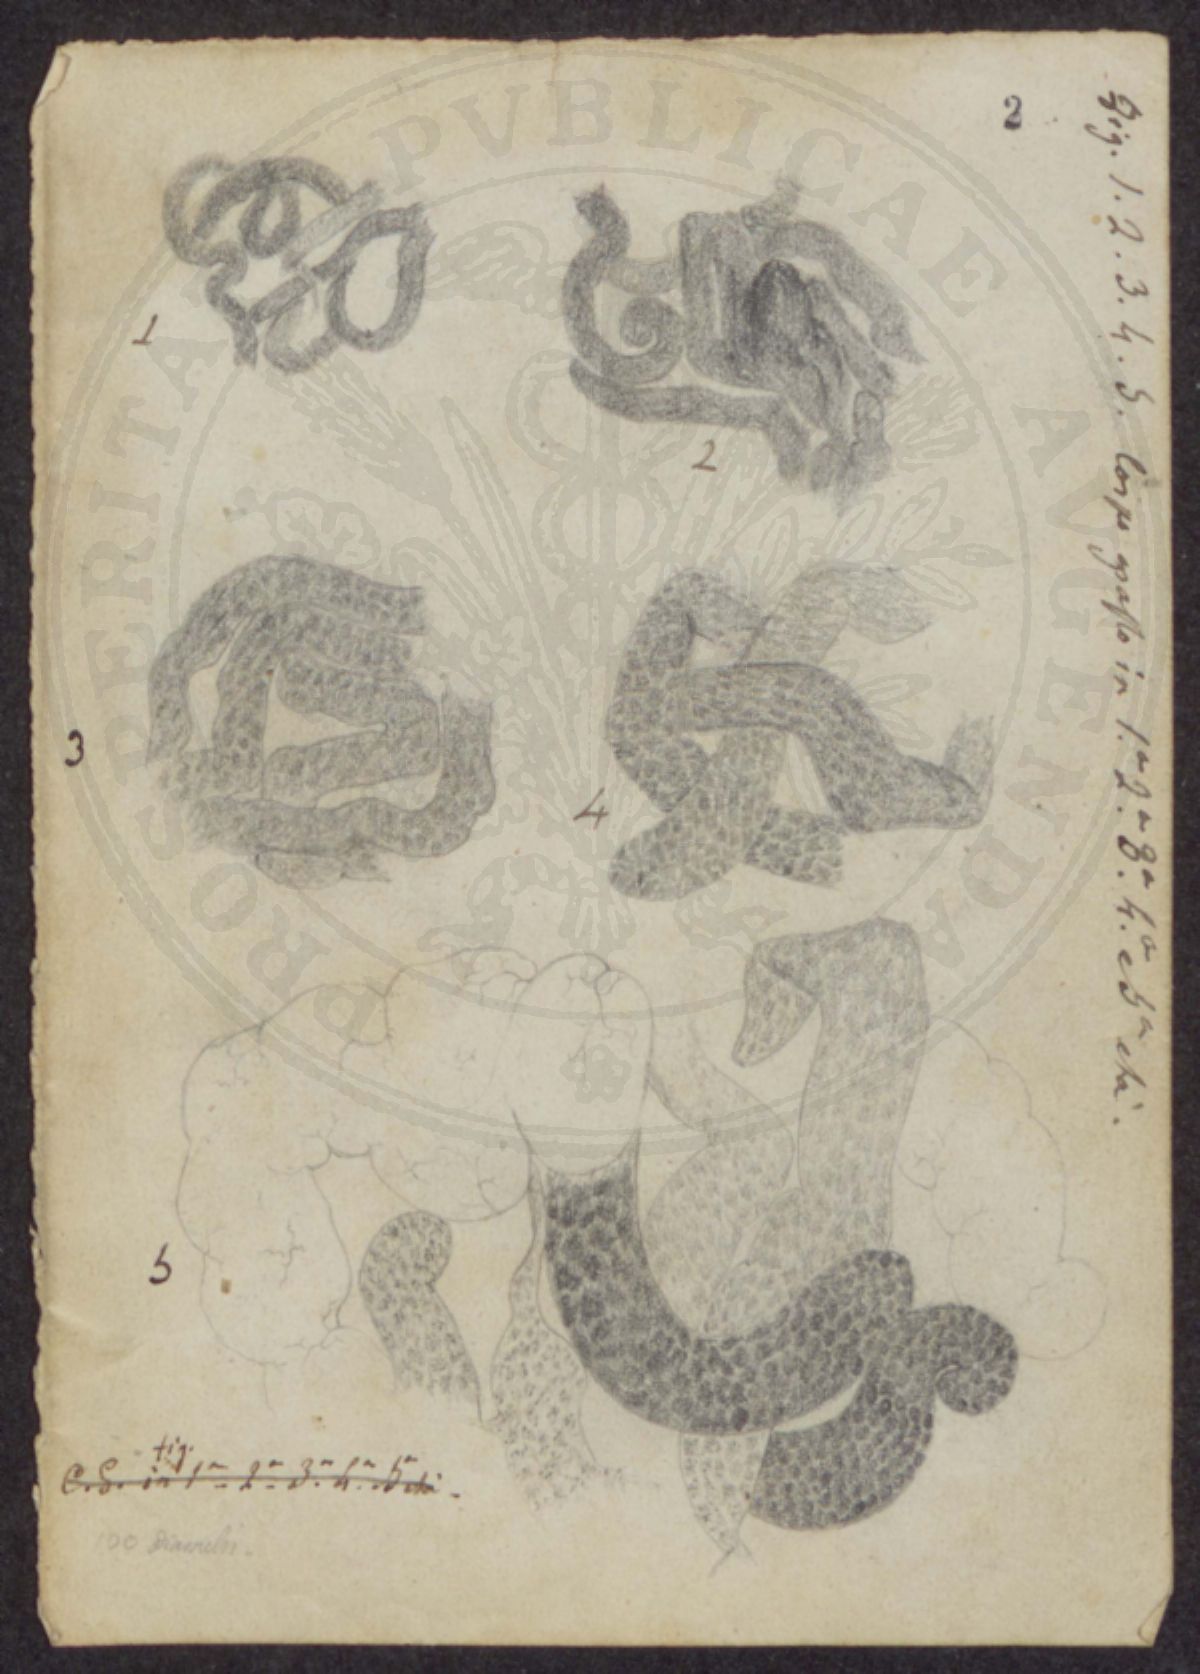 2
Fig. 1. 2. 3. 4. 5. Corpo grasso in 1.a 2.a 3.a 4.a e 5a età.
1
2
3
4
5
fig.
C. S. in 1a 2a 3a 4a 5a età.
100 diametri.
PROSPERITATI PVBLICAE AVGENDAE